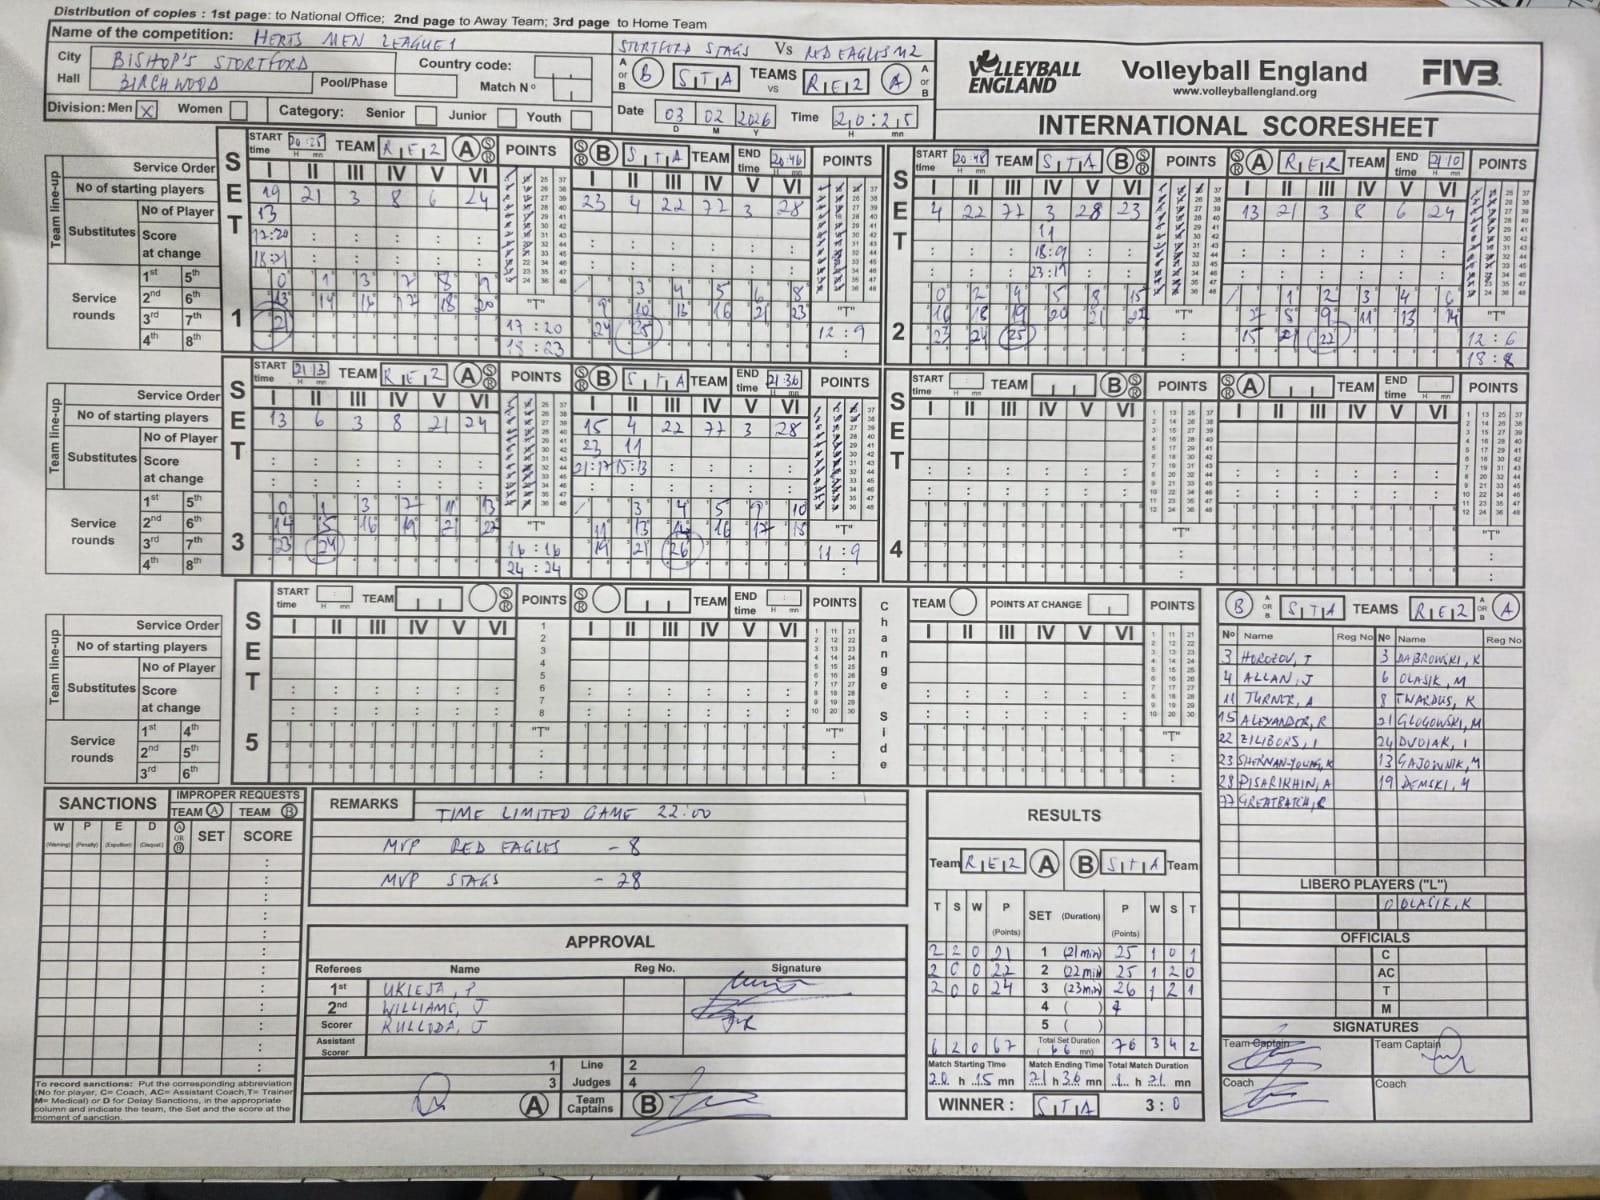 Distribution of copies : 1st page: to National Office; 2nd page to Away Team; 3rd page to Home Team
Name of the competition: HERTS MEN LEAGUE 1
STORTFORD STAGS Vs RED EAGLES M2
City BISHOP'S STORTFORD
Country code:
Hall BIRCHWOOD
Pool/Phase
Match Nº
A or B B STA TEAMS VS RE2 A A or B
Division: Men X Women
Category: Senior Junior Youth
Date 03 02 2026 Time 20:25
D M Y H mn
VOLLEYBALL ENGLAND
Volleyball England
www.volleyballengland.org
FIVB
INTERNATIONAL SCORESHEET
SET 1
START time 20:25 TEAM RE2 A S R POINTS S R B STA TEAM END time 20:46 POINTS
Service Order I II III IV V VI
I II III IV V VI
Team line-up
No of starting players 19 21 3 8 6 24
23 4 22 77 3 28
Substitutes No of Player 13
Score at change 17:20
18:21
Service rounds 1st 5th
2nd 6th
3rd 7th
4th 8th
"T" 17:20
18:23
"T" 12:9
SET 2
START time 20:48 TEAM STA B S R POINTS S R A RE2 TEAM END time 21:10 POINTS
I II III IV V VI
I II III IV V VI
4 22 77 3 28 23
13 21 3 8 6 24
11
18:9
23:19
0 2 4 5 8 15
1 2 3 4 6
16 18 19 20 21 22
7 8 9 11 13 14
23 24 25
15 21 22
"T"
"T" 12:6
18:8
SET 3
START time 21:13 TEAM RE2 A S R POINTS S R B STA TEAM END time 21:36 POINTS
Service Order I II III IV V VI
I II III IV V VI
Team line-up
No of starting players 13 6 3 8 21 24
15 4 22 77 3 28
Substitutes No of Player
23 11
Score at change
21:17 15:13
Service rounds 1st 5th
0 1 3 7 11 13
3 4 5 9 10
2nd 6th
14 15 16 19 21 22
11 13 14 16 17 18
3rd 7th
23 24
19 21 26
4th 8th
"T" 16:16
24:24
"T" 11:9
SET 4
START time TEAM B S R POINTS S R A TEAM END time POINTS
I II III IV V VI
I II III IV V VI
"T"
"T"
SET 5
START time TEAM S R POINTS S R TEAM END time POINTS
Change Side
TEAM POINTS AT CHANGE POINTS
Service Order I II III IV V VI
I II III IV V VI
I II III IV V VI
Team line-up
No of starting players
Substitutes No of Player
Score at change
Service rounds 1st 4th
2nd 5th
3rd 6th
"T"
"T"
"T"
B A OR B STA TEAMS RE2 A OR B A
Nº Name Reg No Nº Name Reg No
3 HOROZOV, T 3 DABROWSKI, K
4 ALLAN, J 6 OLASIK, M
11 TURNER, A 8 TWARDUS, K
15 ALEXANDER, R 21 GLOGOWSKI, M
22 ZILIBORS, I 24 DVOIAK, I
23 SHERMAN-YOUNG, K 13 GAJOWNIK, M
28 PISARIKHIN, A 19 DEMSKI, M
77 GREATBATCH, R
LIBERO PLAYERS ("L")
0 OLASIK, K
OFFICIALS
C
AC
T
M
SIGNATURES
Team Captain Team Captain
Coach Coach
SANCTIONS
IMPROPER REQUESTS
TEAM A TEAM B
W P E D A OR B SET SCORE
(Warning) (Penalty) (Expulsion) (Disqual.)
To record sanctions: Put the corresponding abbreviation
(No for player, C= Coach, AC= Assistant Coach,T= Trainer
M= Medical) or D for Delay Sanctions, in the appropriate
column and indicate the team, the Set and the score at the
moment of sanction.
REMARKS
TIME LIMITED GAME 22:00
MVP RED EAGLES - 8
MVP STAGS - 28
APPROVAL
Referees Name Reg No. Signature
1st UKLEJA, P
2nd WILLIAMS, J
Scorer KULLODA, J
Assistant Scorer
1 Line 2
3 Judges 4
A Team Captains B
RESULTS
Team RE2 A B STA Team
T S W P (Points) SET (Duration) P (Points) W S T
2 2 0 21 1 (21 min) 25 1 0 1
2 0 0 22 2 (22 min) 25 1 2 0
2 0 0 24 3 (23 min) 26 1 2 1
4 ( )
5 ( )
6 2 0 67 Total Set Duration (66 mn) 76 3 4 2
Match Starting Time Match Ending Time Total Match Duration
20 h 15 mn 21 h 36 mn 1 h 21 mn
WINNER : STA 3:0